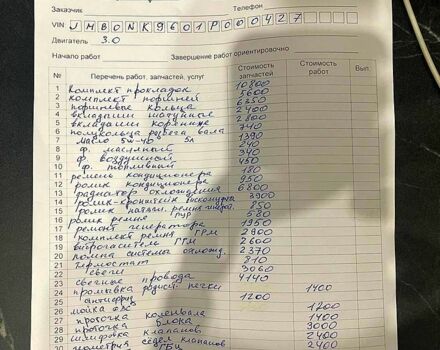 Заказчик Телефон
VIN JMB0NK9601P000427
Двигатель 3.0
Начало работ Завершение работ ориентировочно
№ Перечень работ, запчастей, услуг Стоимость запчастей Стоимость работ Вып.
1 комплект прокладок 10800
2 комплект поршней 5600
3 поршневые кольца 6350
4 вкладыши шатунные 2400
5 вкладыши коренные 2800
6 полукольца вала 740
7 Масло 5w-40 5л 1390
8 ф. масляный 240
9 ф. воздушный 340
10 ф. топливный 450
11 ремень кондиционера 180
12 ролик кондиционера 950
13 радиатор охлождения 6800
14 ролик-кронштейн 3900
15 ролик натяж. ремня 850
16 ролик ремня ГУР 580
17 ремонт генератора 1950
18 комплект ремня ГРМ 2900
19 виброгаситель ГТМ 2600
20 помпа система охложд. 2370
21 термостат 810
22 свечи 3060
23 свечные провода 4140
24 промывка печки 1400
25 антифриз 1200
26 мойка двс 1200
27 проточка коленвала 1400
28 проточка блока 3000
29 шлифовка клапанов 2400
30 геометрия седел клапанов 2400
ГБЦ